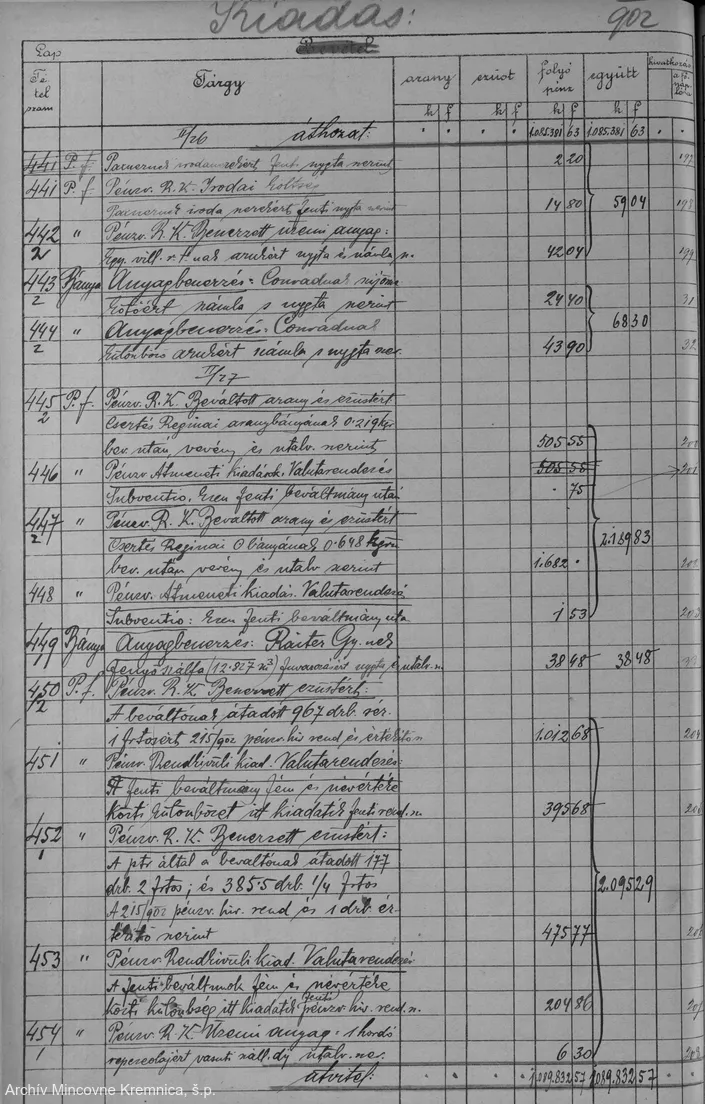 Kiadás: 902
Lap Bevétel
Té tel szám Tárgy arany ezüst folyó pénz együtt hivatkozás
k f k f k f k f
II/26 áthozat: 1,085.381 63 1,085.381 63
441 P. f. nyugta szerint 2 20 197
441 P. f. Pénzv. R. K. Irodai költség
iroda szerekért fenti nyugta szerint 14 80 59 04 198
442 " Pénzv. R. K. Beszerzett üzemi anyag:
2 Egy. vill. r. t. nak árukért nyugta és számla sz. 42 04 199
443 Bánya Anyagbeszerzés: Conradnak
2 számla s nyugta szerint 24 40 31
444 " Anyagbeszerzés: Conradnak 68 30
2 különböző árukért számla s nyugta szer. 43 90 32
II/27
445 P. f. Pénzv. R. K. Beváltott arany és ezüstért
2 Csertés Reginai aranybányának 0.219
bev. után vevény és utalv. szerint 505 55 200
446 " Pénzv. Átmeneti kiadások. Valutarendezés 505 55 201
Subventio. Ezen fenti beváltmány után 75
447 " Pénzv. R. K. Beváltott arany és ezüstért
2 Csertés Reginai bányának 0.648 2.189 83
bev. után vevény és utalv. szerint 1.682 202
448 " Pénzv. Átmeneti kiadás. Valutarendezés
Subventio: Ezen fenti beváltmány uta 1 53 203
449 Bánya Anyagbeszerzés: Gy. nek
fenyő szálfa (12.827 m3) nyugta és utalv. sz. 38 48 38 48 33
450 P. f. Pénzv. R. K. Beszerzett ezüstért:
2 A beváltónak átadott 967 drb. sér.
1 frtosért 215/902 pénzv. hiv. rend és értesítő sz 1.012 68 204
451 " Pénzv. Rendkivüli kiad. Valutarendezés:
A fenti beváltmány fém és névértéke
közti különbözet itt kiadatik fenti rend. sz. 395 68
452 " Pénzv. R. K. Beszerzett ezüstért:
1 A ptr által a beváltónak átadott 177
drb. 2 frtos; és 385.5 drb. 1/4 frtos 2.095 29
A 215/902 pénzv. hiv. rend és 1 drb. ér-
tesítő szerint 475 77
453 " Pénzv. Rendkivüli kiad. Valutarendezés
A fenti beváltmok fém és névértéke
közti különbség itt kiadatik fenti pénzv. hiv. rend. sz. 204 86
454 " Pénzv. R. K. Üzemi anyag: 1 hordó
1 vasuti száll. díj utalv. sz. 6 30
átvitel: 1,089.832 57 1,089.832 57
Archív Mincovne Kremnica, š.p.